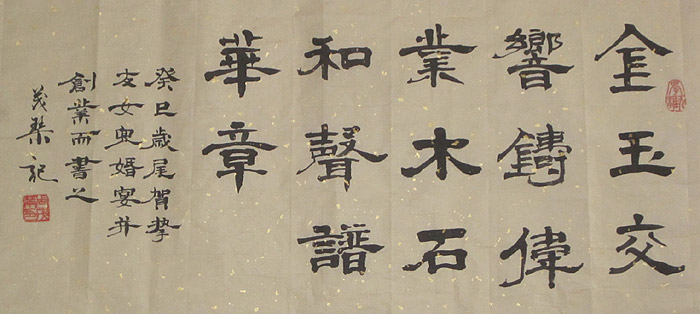 金玉交
響鑄偉
業木石
和聲譜
華章
癸巳歲尾賀摯
友女兒婚宴并
創業而書之
茂棻記